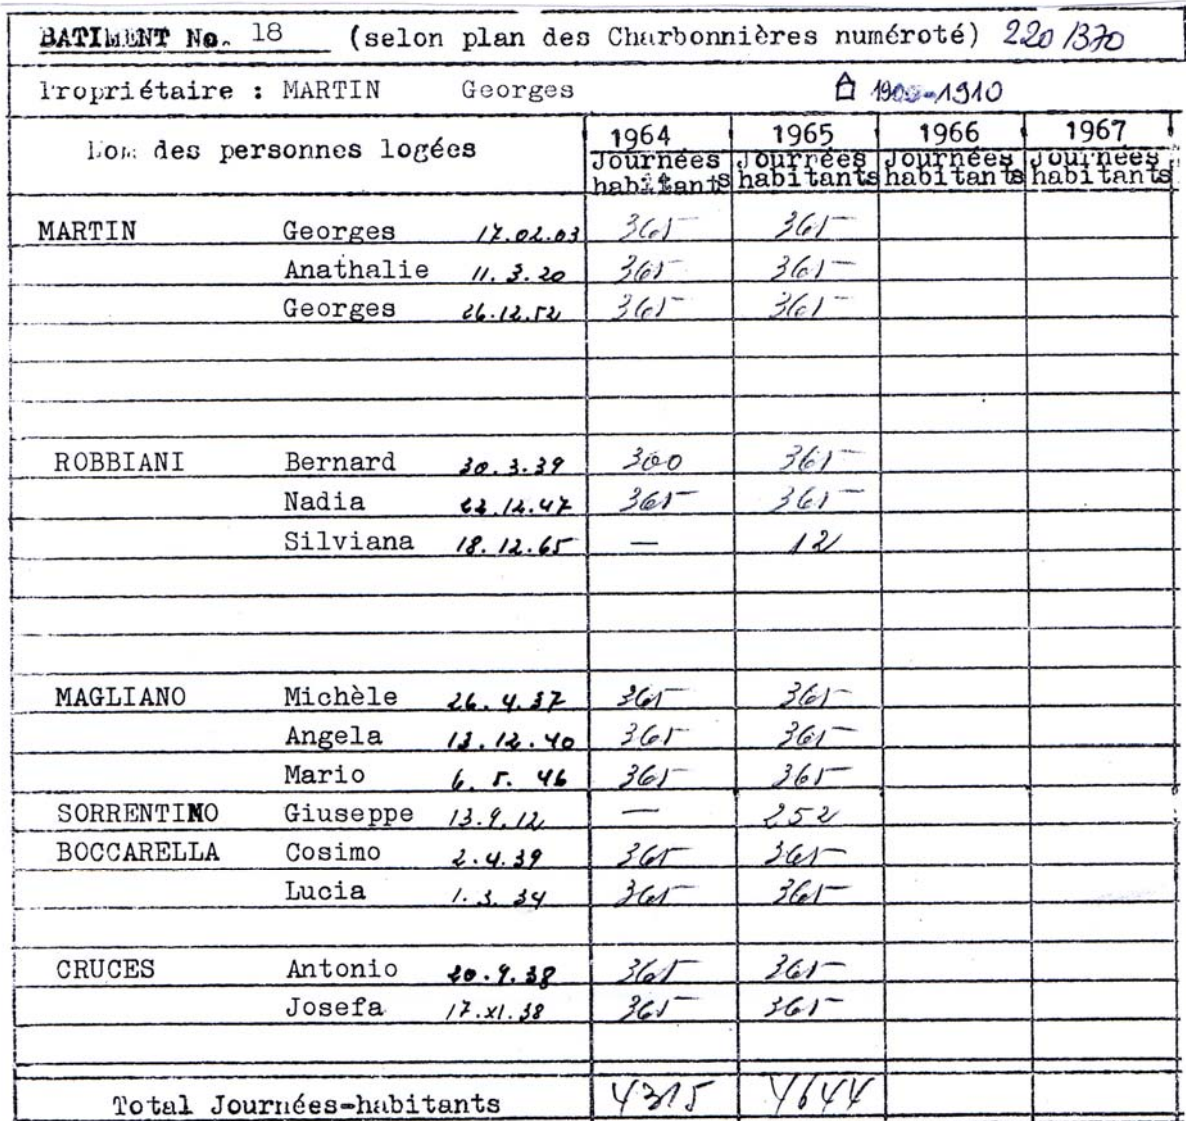 BATIMENT No. 18 (selon plan des Charbonnières numéroté) 220/370
Propriétaire : MARTIN Georges 1900-1910
Nom des personnes logées 1964 1965 1966 1967
Journées Journées Journées Journées
habitants habitants habitants habitants
MARTIN Georges 17.02.03 365 365
Anathalie 11.3.20 365 365
Georges 26.12.52 365 365
ROBBIANI Bernard 30.3.39 300 365
Nadia 23.12.47 365 365
Silviana 18.12.65 — 12
MAGLIANO Michèle 26.4.37 365 365
Angela 13.12.40 365 365
Mario 6.5.46 365 365
SORRENTINO Giuseppe 13.9.12 — 252
BOCCARELLA Cosimo 2.4.39 365 365
Lucia 1.3.34 365 365
CRUCES Antonio 20.9.38 365 365
Josefa 17.XI.38 365 365
Total Journées-habitants 4315 4644